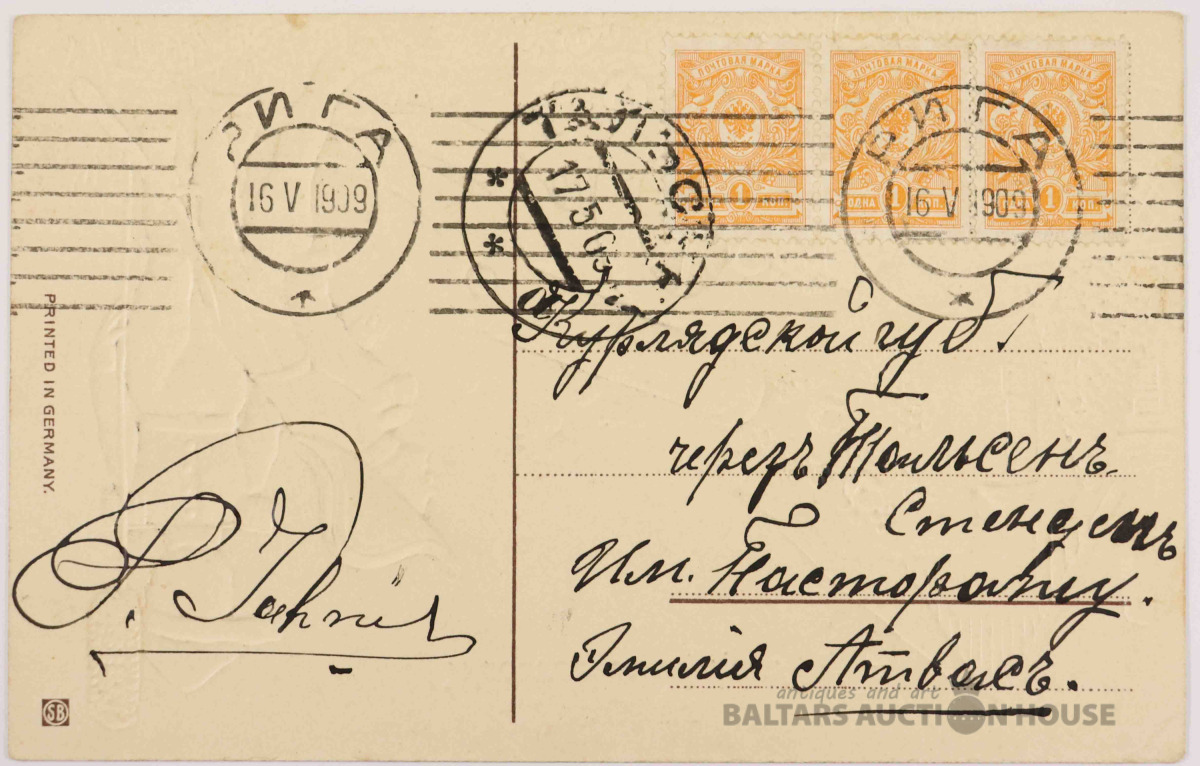 ПОЧТОВАЯ МАРКА ПОЧТОВАЯ МАРКА ПОЧТОВАЯ МАРКА
1 КОП.
ОДНА 1 КОП.
1 КОП.
РИГА
16 V 1909
17 5 09
РИГА
16 V 1909
PRINTED IN GERMANY.
Курлядской губ.
черезъ Тальсенъ.
Стенденъ
Им.
Эмилія Атвасъ.
P. Jahnis
SB
antiques and art
BALTARS AUCTION HOUSE